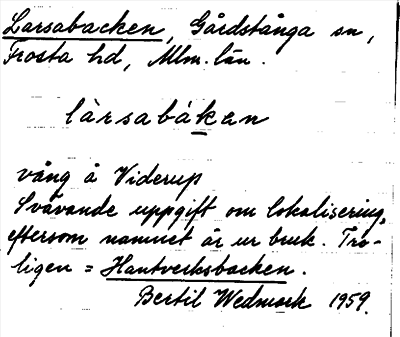 Larsabacken, Gårdstånga sn,
Frosta hd, Mlm. län.
làrsabákan
vång å Viderup
Svävande uppgift om lokalisering,
eftersom namnet är ur bruk. Tro-
ligen = Hantverksbacken.
Bertil Wedmark 1959.